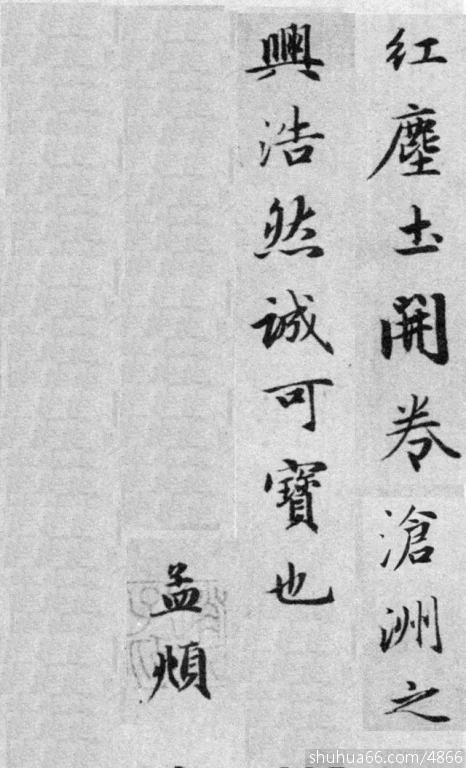 紅塵土開卷滄洲之
興浩然誠可寶也
孟頫
shuhua66.com/4866